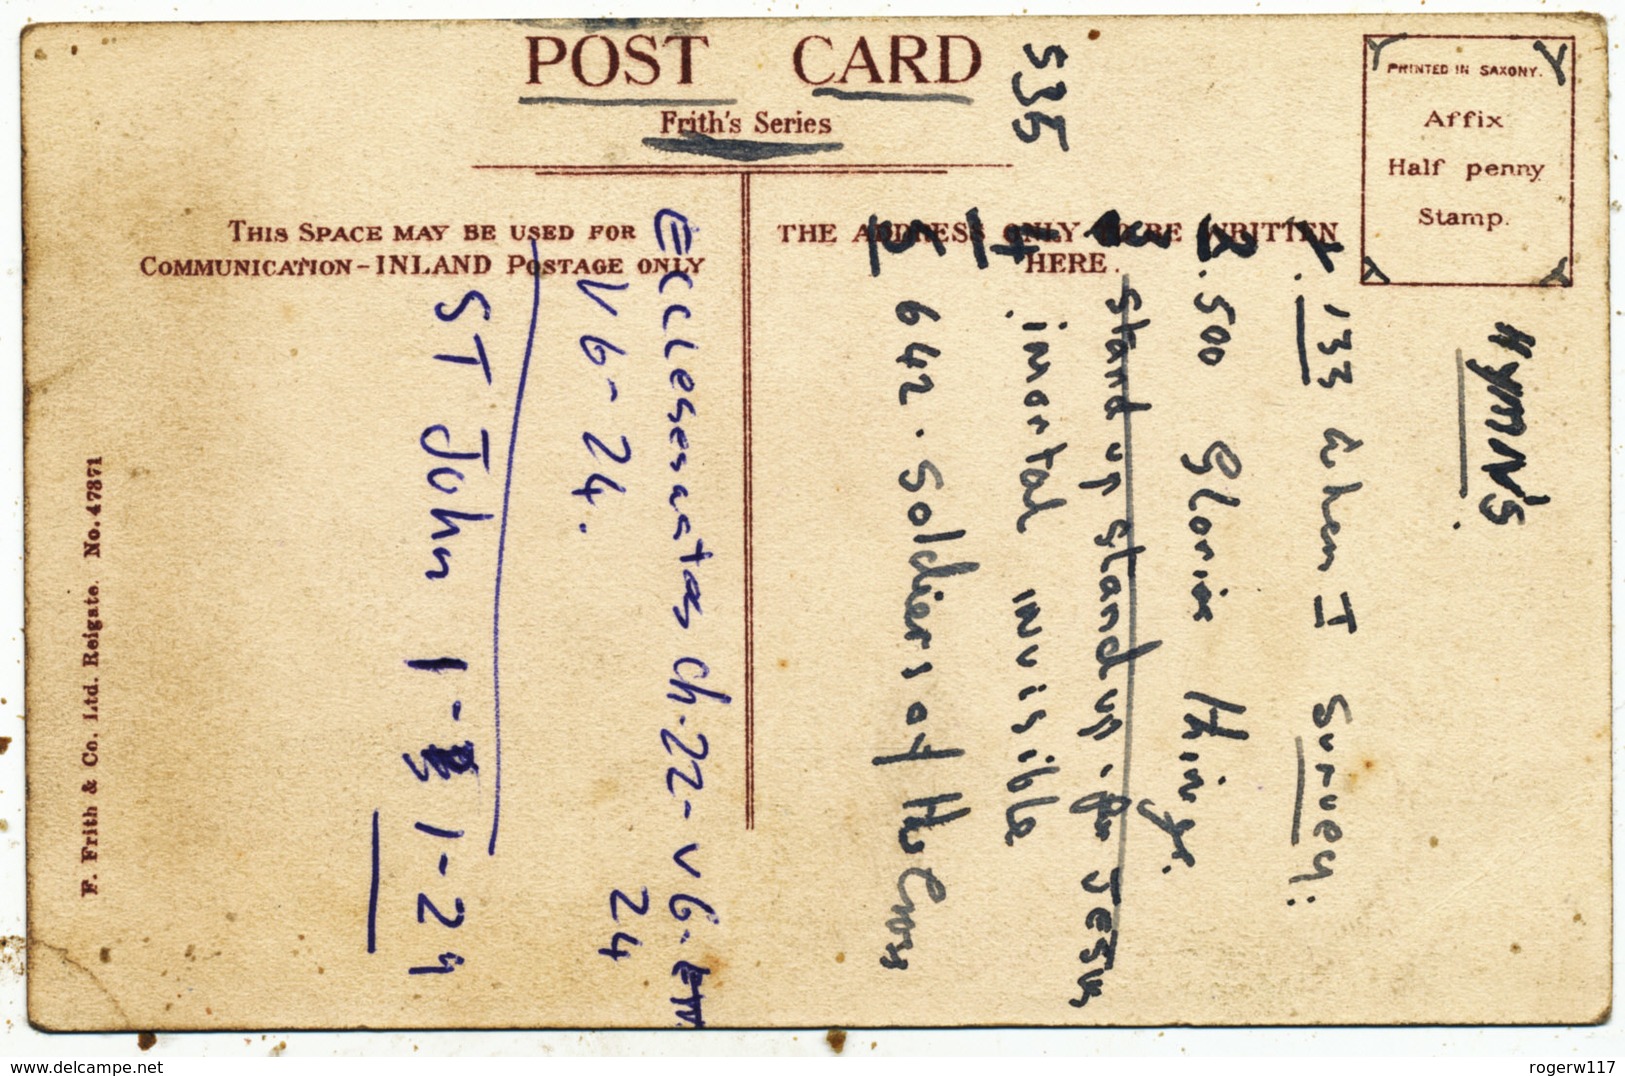 POST CARD
Frith's Series
THIS SPACE MAY BE USED FOR
COMMUNICATION-INLAND POSTAGE ONLY
THE ADDRESS ONLY TO BE WRITTEN
HERE.
PRINTED IN SAXONY.
Affix
Half penny
Stamp.
F. Frith & Co. Ltd. Reigate. No. 47871
Hymn's.
1. 133 When I Survey.
2. 500 Glorius Things.
3 Stand up stand up. for Jesus
535 4 imortal invisible
5 642. Soldiers of the Cross
Ecclesesastas ch. 22 - v 6-
24
V 6 - 24.
ST John 1 - 1 - 29
delcampe.net
rogerw117